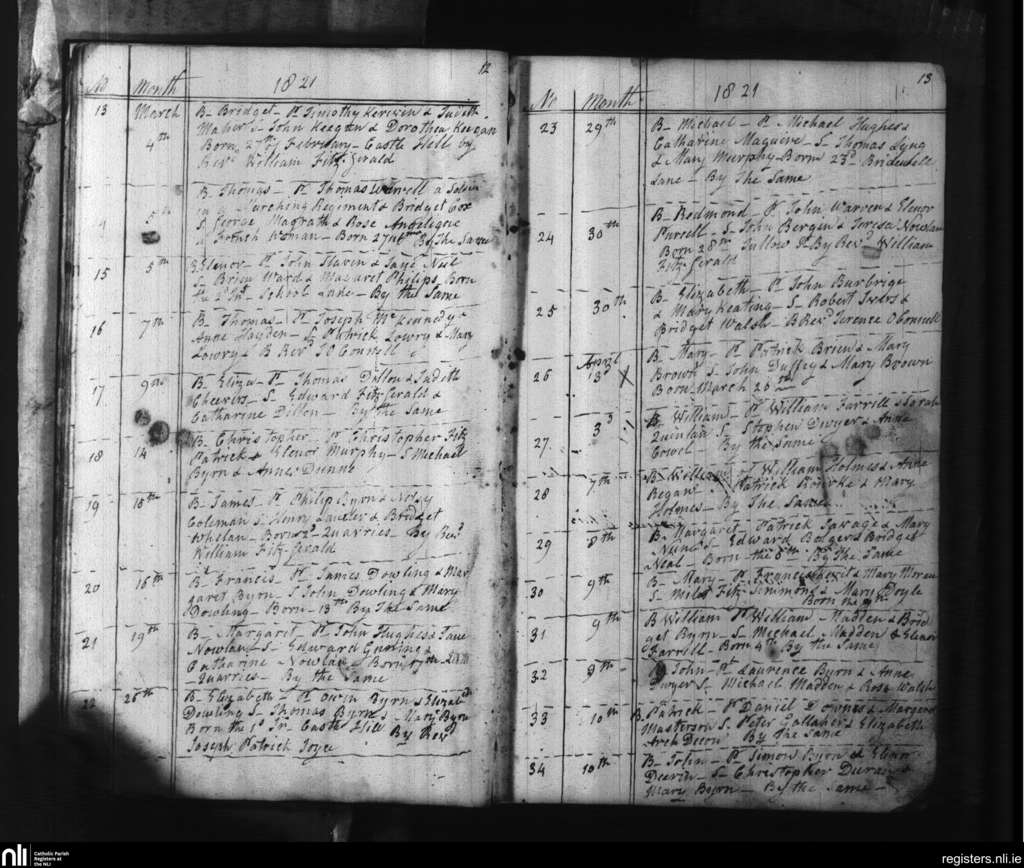 12
No Month 1821
13 March 4th B- Bridget- Pt Timothy Kerwin & Judith
Maher S- John Keegan & Dorothea Keegan
Born 27th February- Castle Hill by
Revd William Fitz-Gerald
5th B- Thomas- Pt Thomas a
in a Marching Regiment & Bridget Cox
S George Magrath & Rose
A French Woman- Born 27th By The Same
15 5th B. Elenor- Pt John & Jane Neil
S- Brien Ward & Margaret Philips Born
the 2d Inst School Lane- By the Same
16 7th B- Thomas- Pt Joseph McKennedy &
Anne Hayden- S Patrick Lowry & Mary
Lowry & B Revd T O Connell
17 9th B- Eliza- Pt Thomas Dillon & Judith
Cheevers- S- Edward Fitz-Gerald &
Catharine Dillen- By the Same
18 14 B- Christopher- Pt Christopher Fitz
Patrick & Elenor Murphy- S Michael
Byrn & Annes Dunne
19 15th B- James- Pt Philip Byrn &
Coleman S- Henry Lawler & Bridget
Whelan- Born 2d Quarries- By Revd
William Fitz-Gerald
20 16th B- Francis Pt James Dowling & Mar
garet Byrn- S John Dowling & Mary
Dowling- Born- 13th By The Same
21 19th B- Margaret- Pt John Hughes & Jane
Nowlan- S- Edward &
Catharine Nowlan Born 17th
Quarries- By the Same
22 26th B- Elizabeth- Pt Owen Byrn & Elizab
Dowling S Thomas Byrn & Mary Byrn
Born the 1st Castle Hill By Revd
Joseph Patrick Joyce
13
No Month 1821
23 29th B- Michael- Pt Michael Hughes &
Catharine Maguire- S- Thomas Lyng
& Mary Murphy- Born 23d Bridewell
Lane- By The Same
24 30th B- Redmond- Pt John Warren & Elenor
Purcell- S- John Bergen & Teresa Nowlan
Born 28th Tullow St By Revd William
Fitz-Gerald
25 30th B- Elizabeth- Pt John Burbrige
& Mary Keating- S Robert &
Bridget Walsh- B Revd Terence OConnell
26 April B- Mary- Pt Patrick Brien & Mary
Brown S- John Duffey & Mary Brown
Born March 25th
27. 3d B- William- Pt William Farrell & Sarah
Quinlan S- Stephen Dwyer & Anne
By the Same
28 7th B- William Pt William Holmes & Anne
Began Patrick Rourke & Mary
Holmes- By The Same
29 8th B- Margaret- Patrick Savage & Mary
S- Edward Bolger & Bridget
Neal- Born the 8th By The Same
30 9th B- Mary- Pt Francis & Mary
S- Miles Fitz-Simmons & Mary Doyle
Born the
31 9th B William Pt William Madden & Brid
get Byrn- S- Michael Madden & Elenor
Farrell- Born 4th By the Same
32 9th B John- Pt Laurence Byrn & Anne
Dwyer S- Michael Madden & Rose Walsh
33 10th B. Patrick- Pt Daniel Downes & Margaret
Masterson S- Peter Gallaher & Elizabeth
Arch Decon By the Same
34 10th B- John- Pt Simon Byrn & Elenor
S- Christopher &
Mary Byrn- By the Same-
nli Catholic Parish
Registers at
the NLI
registers.nli.ie